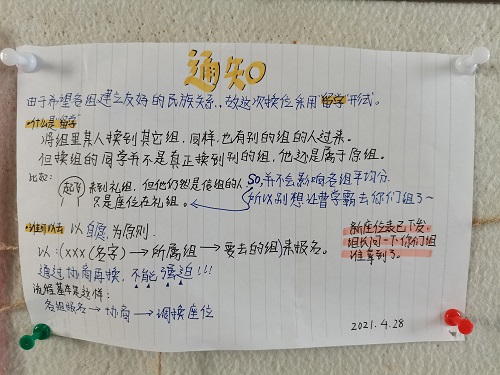 通知
由于希望各组建立友好的民族关系，故这次换位采用"留学"形式。
·什么是"留学"
将组里某人换到其它组，同样，也有别的组的人过来。
但换组的同学并不是真正换到别的组，他还是属于原组。
比如：
来到礼组，但他们仍然是信组的人，
只是座位在礼组。
So,并不会影响各组平均分
所以别想让曹学霸去你们组了~
·谁可以去 以自愿为原则.
以:(xxx(名字)→所属组→要去的组)来报名。
通过协商再换，不能强迫!!!
流程基本是这样:
各组报名→协商→调换座位
新座位表已下发.
组长问一下你们组
谁拿到了.
2021.4.28